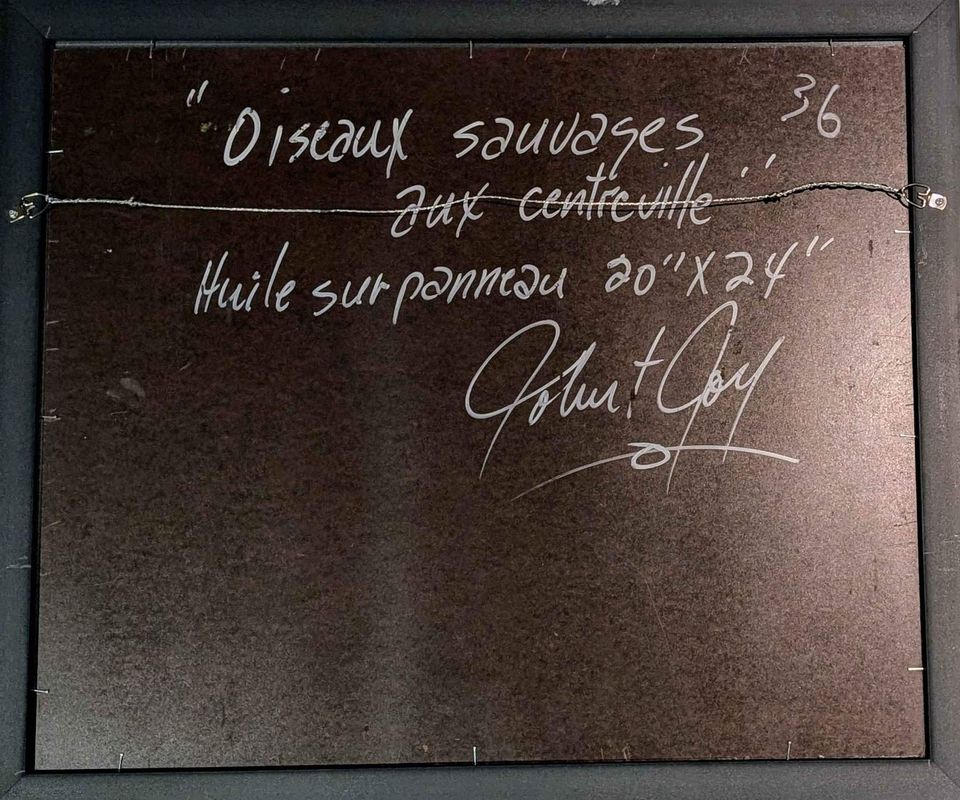 "Oiseaux sauvages 36
aux centreville"
Huile sur panneau 20" X 24"
John + Joy